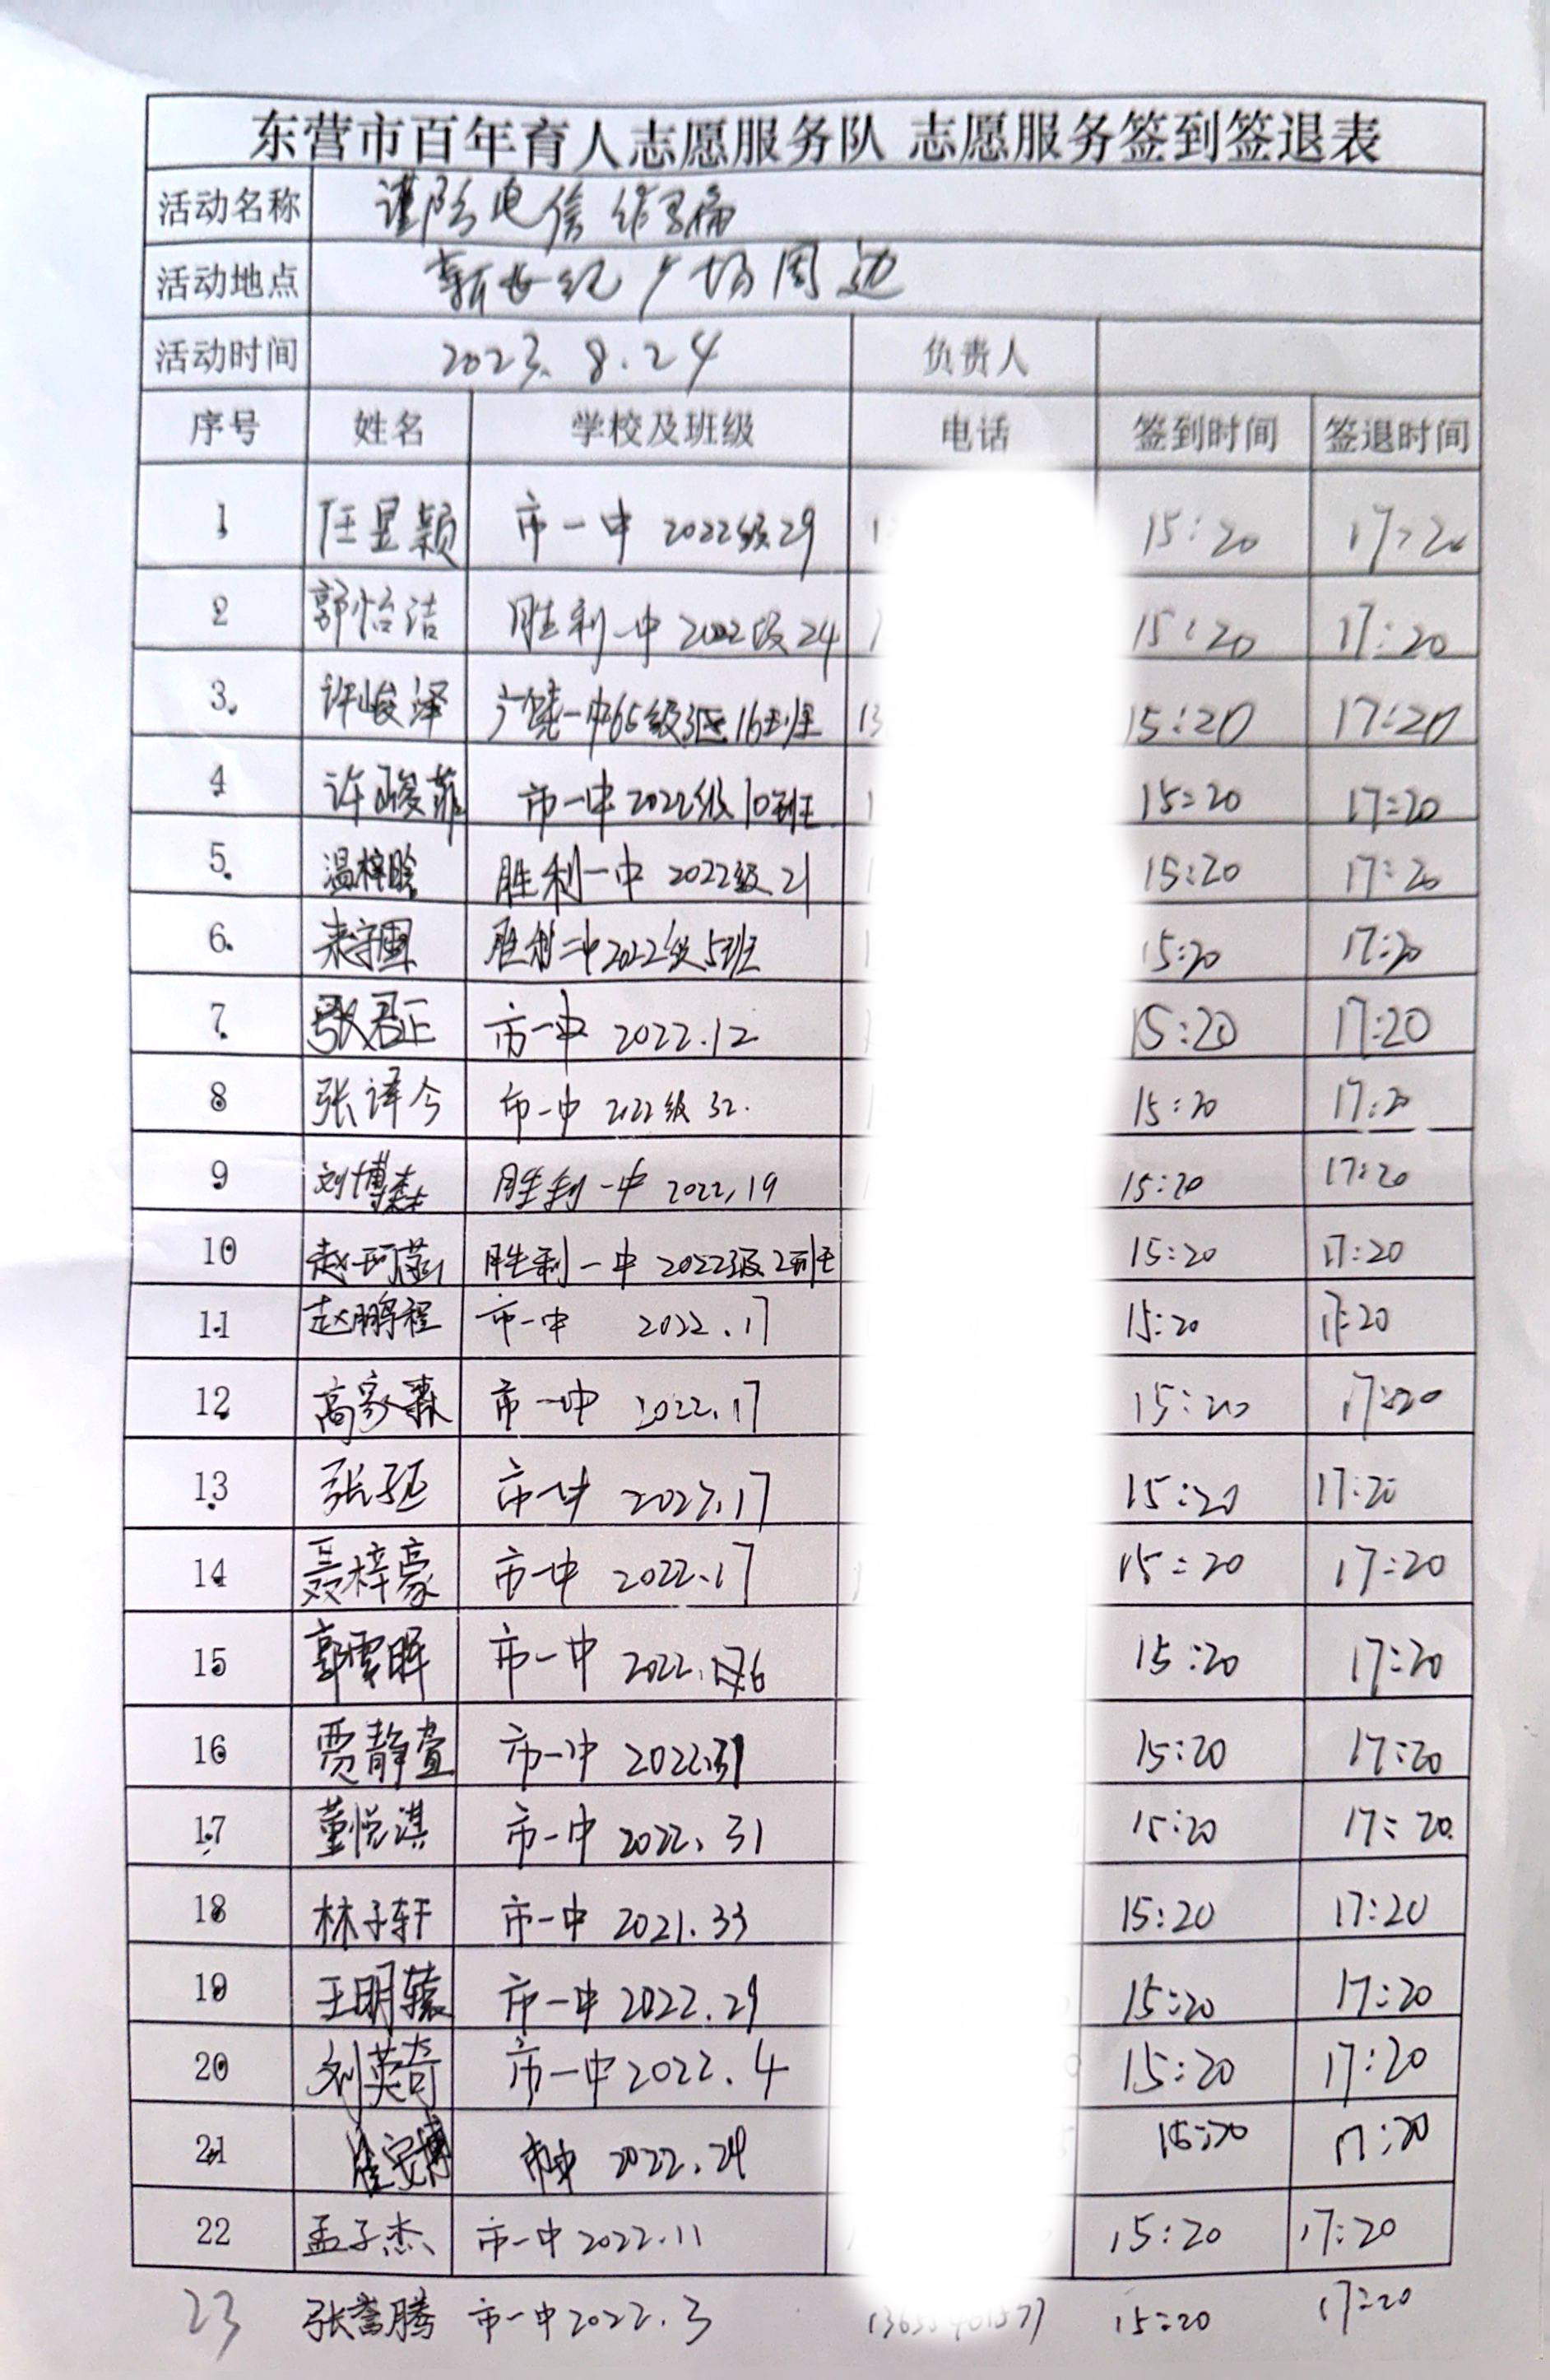 东营市百年育人志愿服务队 志愿服务签到签退表
活动名称 谨防电信诈骗
活动地点 新世纪广场周边
活动时间 2023.8.24 负责人
序号 姓名 学校及班级 电话 签到时间 签退时间
1 任昱颖 市一中 2022级29 15:20 17:20
2 郭怡洁 胜利一中 2022级24 15:20 17:20
3 许峻泽 广饶一中65级3区16班 15:20 17:20
4 许峻菲 市一中2022级10班 15:20 17:20
5 温梓晗 胜利一中 2022级21 15:20 17:20
6 胜利二中2022级5班 15:20 17:20
7 张君正 市一中 2022.12 15:20 17:20
8 张译今 市一中 2022级 32. 15:20 17:20
9 刘博森 胜利一中 2022,19 15:20 17:20
10 赵珂 胜利一中 2022级2班 15:20 17:20
11 赵鹏程 市一中 2022.17 15:20 17:20
12 高家森 市一中 2022.17 15:20 17:20
13 张 市一中 2022.17 15:20 17:20
14 聂梓豪 市一中 2022.17 15:20 17:20
15 郭雲晖 市一中 2022. 6 15:20 17:20
16 贾静萱 市一中 2022.31 15:20 17:20
17 董悦淇 市一中 2022.31 15:20 17:20
18 林子轩 市一中 2021.33 15:20 17:20
19 王明辕 市一中 2022.29 15:20 17:20
20 刘英奇 市一中 2022.4 15:20 17:20
21 崔安博 市一中 2022.29 15:20 17:20
22 孟子杰 市一中 2022.11 15:20 17:20
23 张誉腾 市一中 2022.3 15:20 17:20